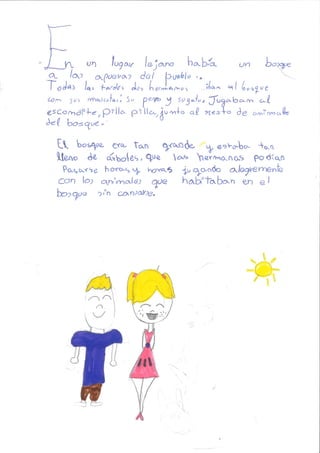 En un lugar lejano había un bosque
a las afueras del pueblo...
Todas las tardes dos hermanos iban al bosque
con sus mascotas: Su perro y su gato. Jugaban al
escondite, pilla pilla, junto al resto de animales
del bosque.
El bosque era tan grande y estaba tan
lleno de árboles, que las hermanas podían
Pasarse horas y horas jugando alegremente
con los animales que habitaban en el
bosque sin cansarse.